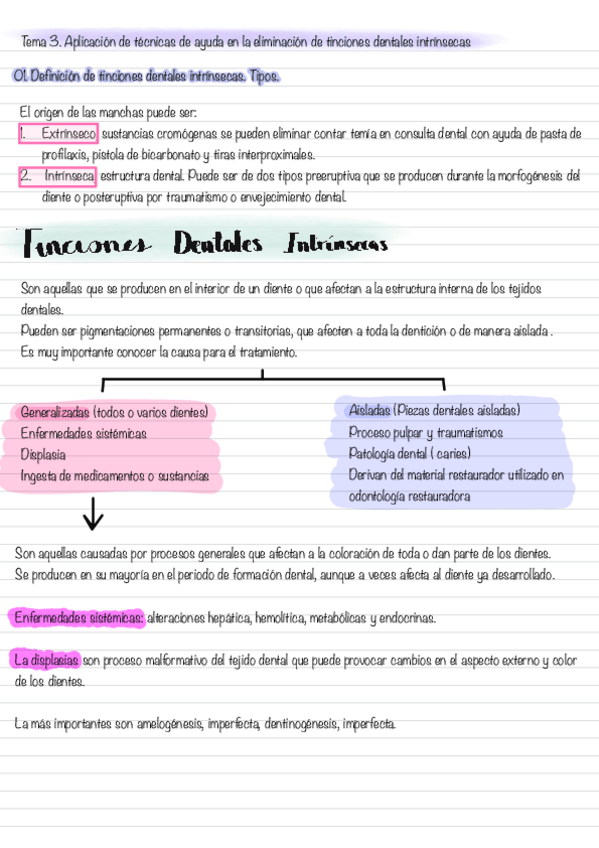 Tema 3. Aplicación de técnicas de ayuda en la eliminación de tinciones dentales intrínsecas
01. Definición de tinciones dentales intrínsecas. Tipos.
El origen de las manchas puede ser:
1. Extrínseco sustancias cromógenas se pueden eliminar contar temía en consulta dental con ayuda de pasta de
profilaxis, pistola de bicarbonato y tiras interproximales.
2. Intrínseca, estructura dental. Puede ser de dos tipos preeruptiva que se producen durante la morfogénesis del
diente o posteruptiva por traumatismo o envejecimiento dental.
Tinciones Dentales Intrínsecas
Son aquellas que se producen en el interior de un diente o que afectan a la estructura interna de los tejidos
dentales.
Pueden ser pigmentaciones permanentes o transitorias, que afecten a toda la dentición o de manera aislada .
Es muy importante conocer la causa para el tratamiento.
Generalizadas (todos o varios dientes)
Enfermedades sistémicas
Displasia
Ingesta de medicamentos o sustancias
Aisladas (Piezas dentales aisladas)
Proceso pulpar y traumatismos
Patología dental ( caries)
Derivan del material restaurador utilizado en
odontología restauradora
Son aquellas causadas por procesos generales que afectan a la coloración de toda o dan parte de los dientes.
Se producen en su mayoría en el periodo de formación dental, aunque a veces afecta al diente ya desarrollado.
Enfermedades sistémicas: alteraciones hepática, hemolítica, metabólicas y endocrinas.
La displasias son proceso malformativo del tejido dental que puede provocar cambios en el aspecto externo y color
de los dientes.
La más importantes son amelogénesis, imperfecta, dentinogénesis, imperfecta.